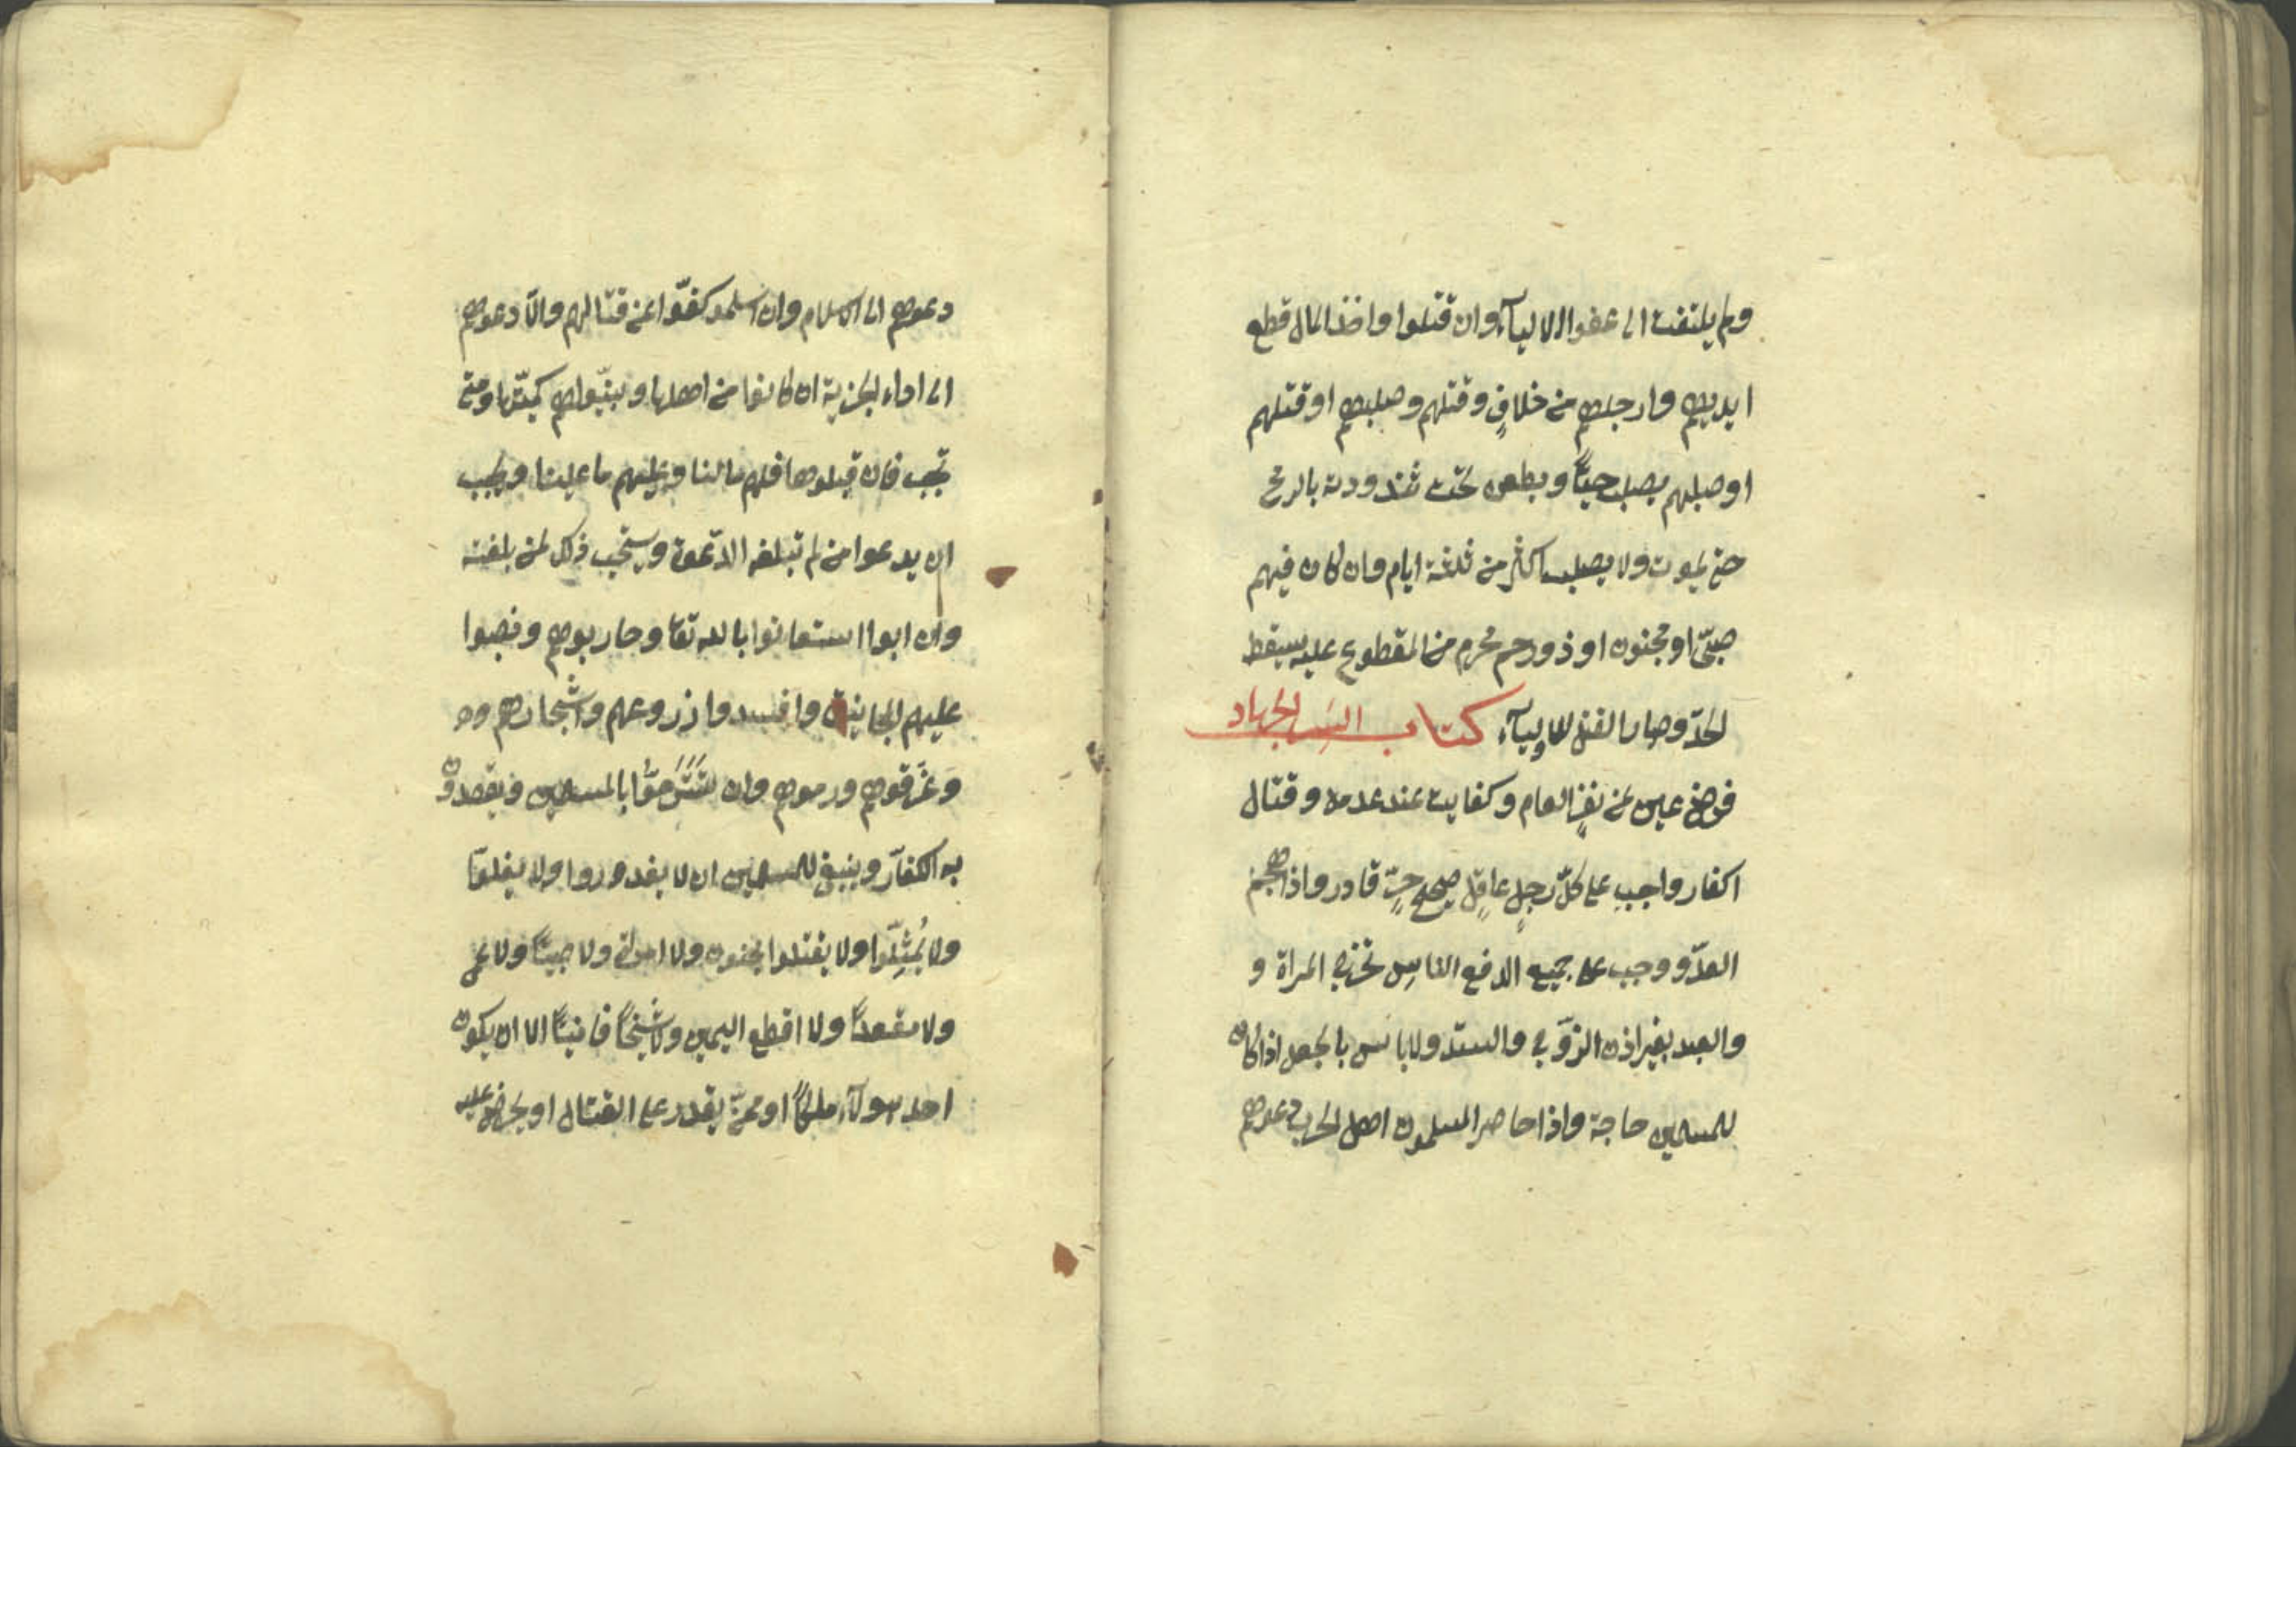 ولم يلتفت الى عفو الاوليآء وان قتلوا واخذ المال قطع
ايديهم وارجلهم من خلافٍ وقتلهم وصلبهم او قتلهم
او صلبهم يصلب حيّاً ويطعن تحت ثندودته بالرمح
حتى يموت ولا يصلب اكثر من ثلثة ايام وان كان فيهم
صبىّ او مجنون او ذو رحم محرم من المقطوع عليه سقط
الحدّ وصار القتل للاوليآء كتاب السير الجهاد
فرض عين عن نفير العام وكفايت عند عدمه وقتال
اكفار واجب على كلّ رجلٍ عاقلٍ صحيحٍ حرّ قادر واذا هجم
العدّو وجب على جميع الناس الدفع تخرج المراة و
والعبد بغير اذن الزوّج والسيّد ولا باس بالجعل اذا كان
للمسلمين حاجة واذا حاصر المسلمون اهل الحرب دعوهم
دعوهم الى الاسلام وان اسلمو كفّوا عن قتالهم والاّ دعوهم
الى اداء الجزية ان كانوا من اهلها وبيّنوا لهم كميّتها ومتى
تجب فان قبلوها فلهم ما لنا وعليهم ما علينا ويجب
ان يدعوا من لم تبلغه الدّعوة ويستحب ذلك لمن بلغته
وان ابوا استعانوا بالله تعا وحاربوهم ونصبوا
عليهم المجانيق وافسدوا زروعهم واشجارهم وحر
وغرّقوهم ورموهم وان تترّسوا بالمسلمين ويقصدون
به الكفّار وينبغى للمسلمين ان لا يغدوروا ولا يغلوا
ولا يُمثِلّوا ولا يقتلوا مجنون ولا امراة ولا صبيّاً ولا عمى
ولا مقعداً ولا اقطع اليمين ولا شيخاً فانيّاً الا ان يكون
احد هولآء ملكاً او ممنّ يقدر على القتال او يحرض عليه